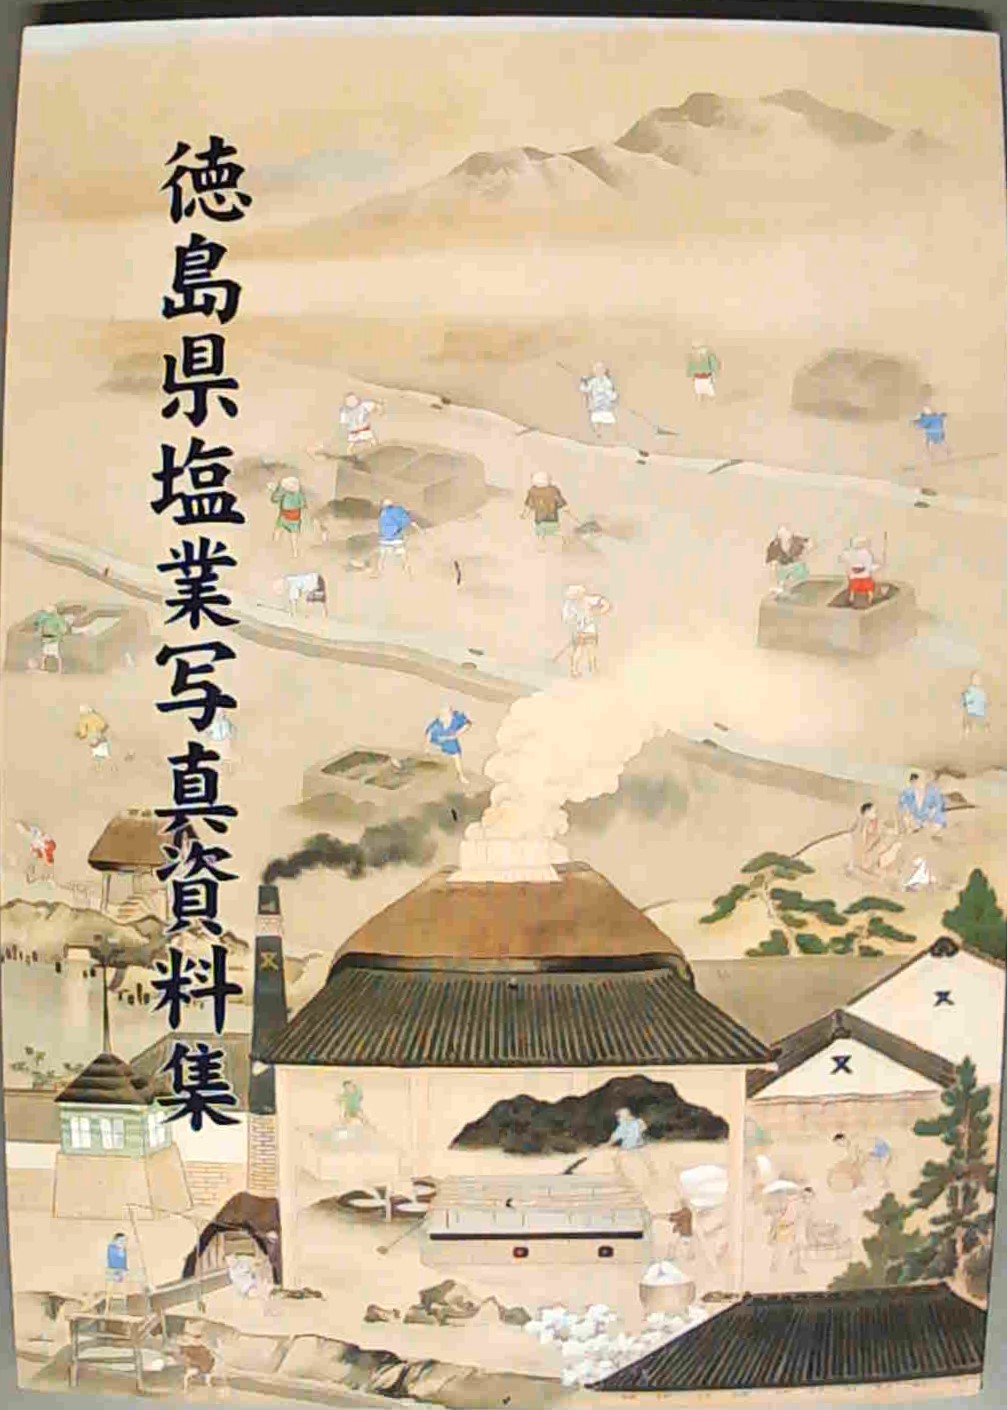 徳島県塩業写真資料集